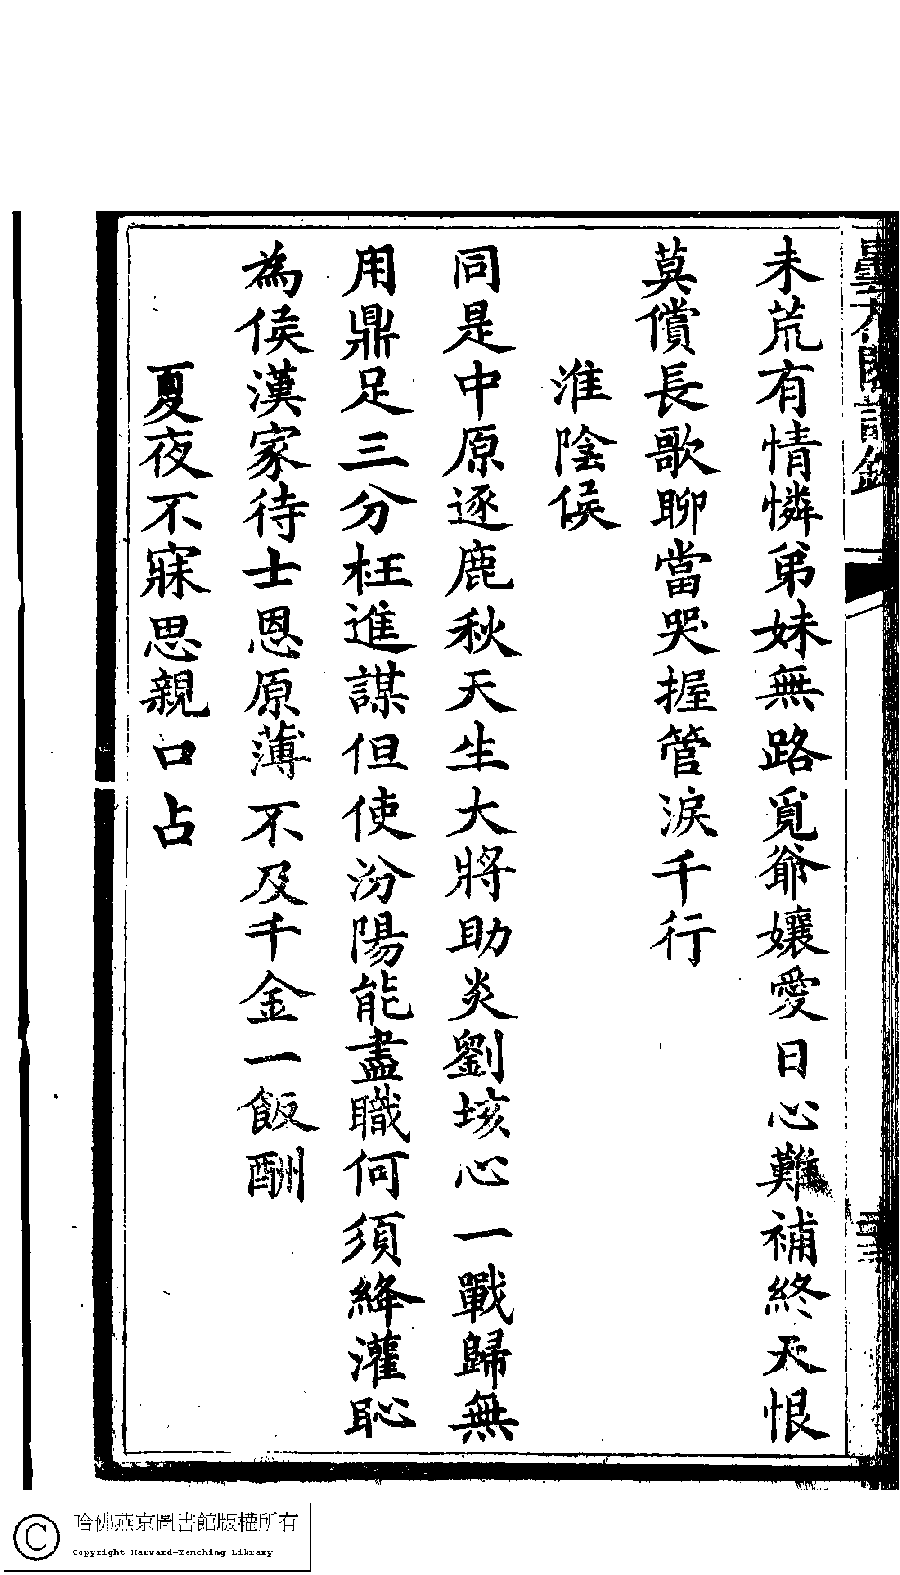 曇花閣詩鈔
未荒有情憐弟妹無路覓爺孃愛日心難補終天恨
莫償長歌聊當哭握管淚千行
淮陰侯
同是中原逐鹿秋天生大將助炎劉垓心一戰歸無
用鼎足三分枉進謀但使汾陽能盡職何須絳灌恥
為侯漢家待士恩原薄不及千金一飯酬
夏夜不寐思親口占
哈佛燕京圖書館版權所有
Copyright Harvard-Yenching Library